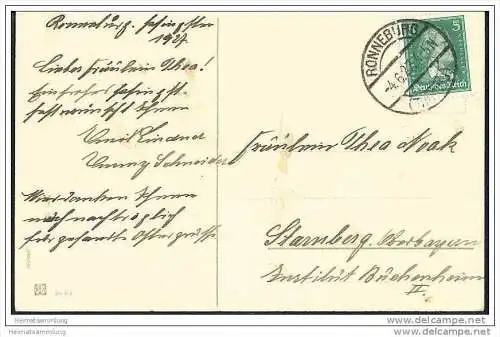 Ronneburg. Pfingsten
1927.
Liebes Fräulein Thea!
Ein frohes Pfingst-
fest wünscht Ihnen
Emil Lindner
Schneider
Wir danken Ihnen
noch nachträglich
für gesandte Ostergrüsse
Fräulein Thea Noak
Starnberg. Oberbayern
Institut Buchenheim
II.
RONNEBURG
-4.6.27
5
Deutsches Reich
Heimatsammlung
Heimatsammlung
www.delcampe.net